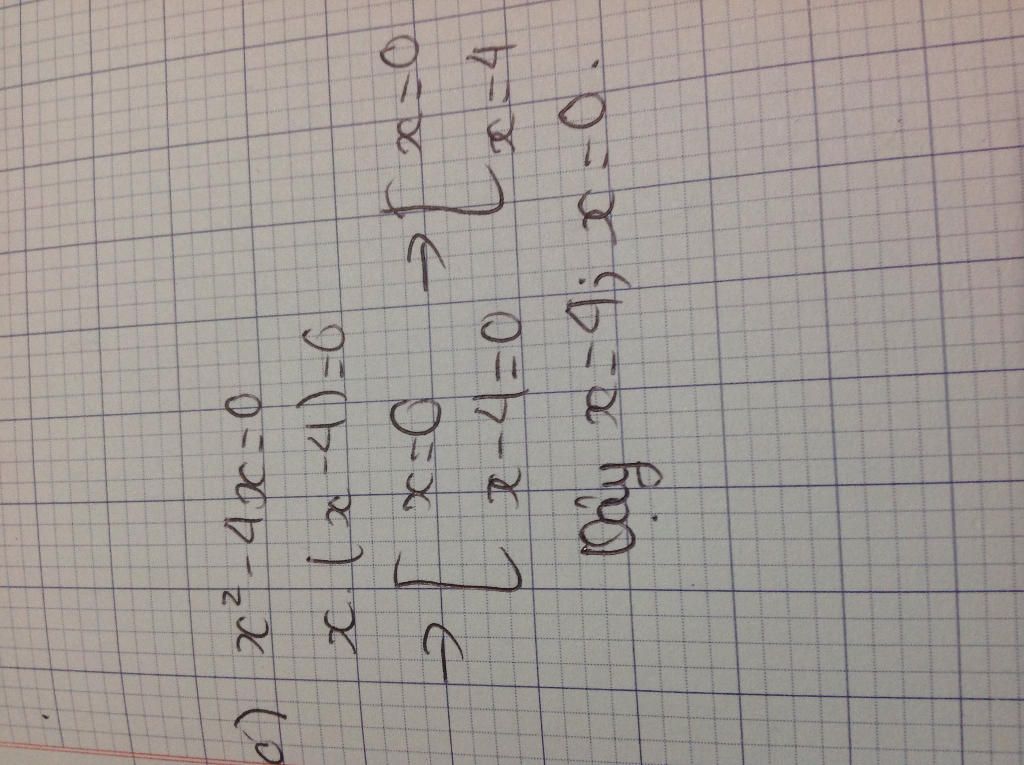 c) x² - 4x = 0
x.(x - 4) = 0
→ [ x = 0 → [ x = 0
x - 4 = 0 x = 4
Vậy x = 4; x = 0.